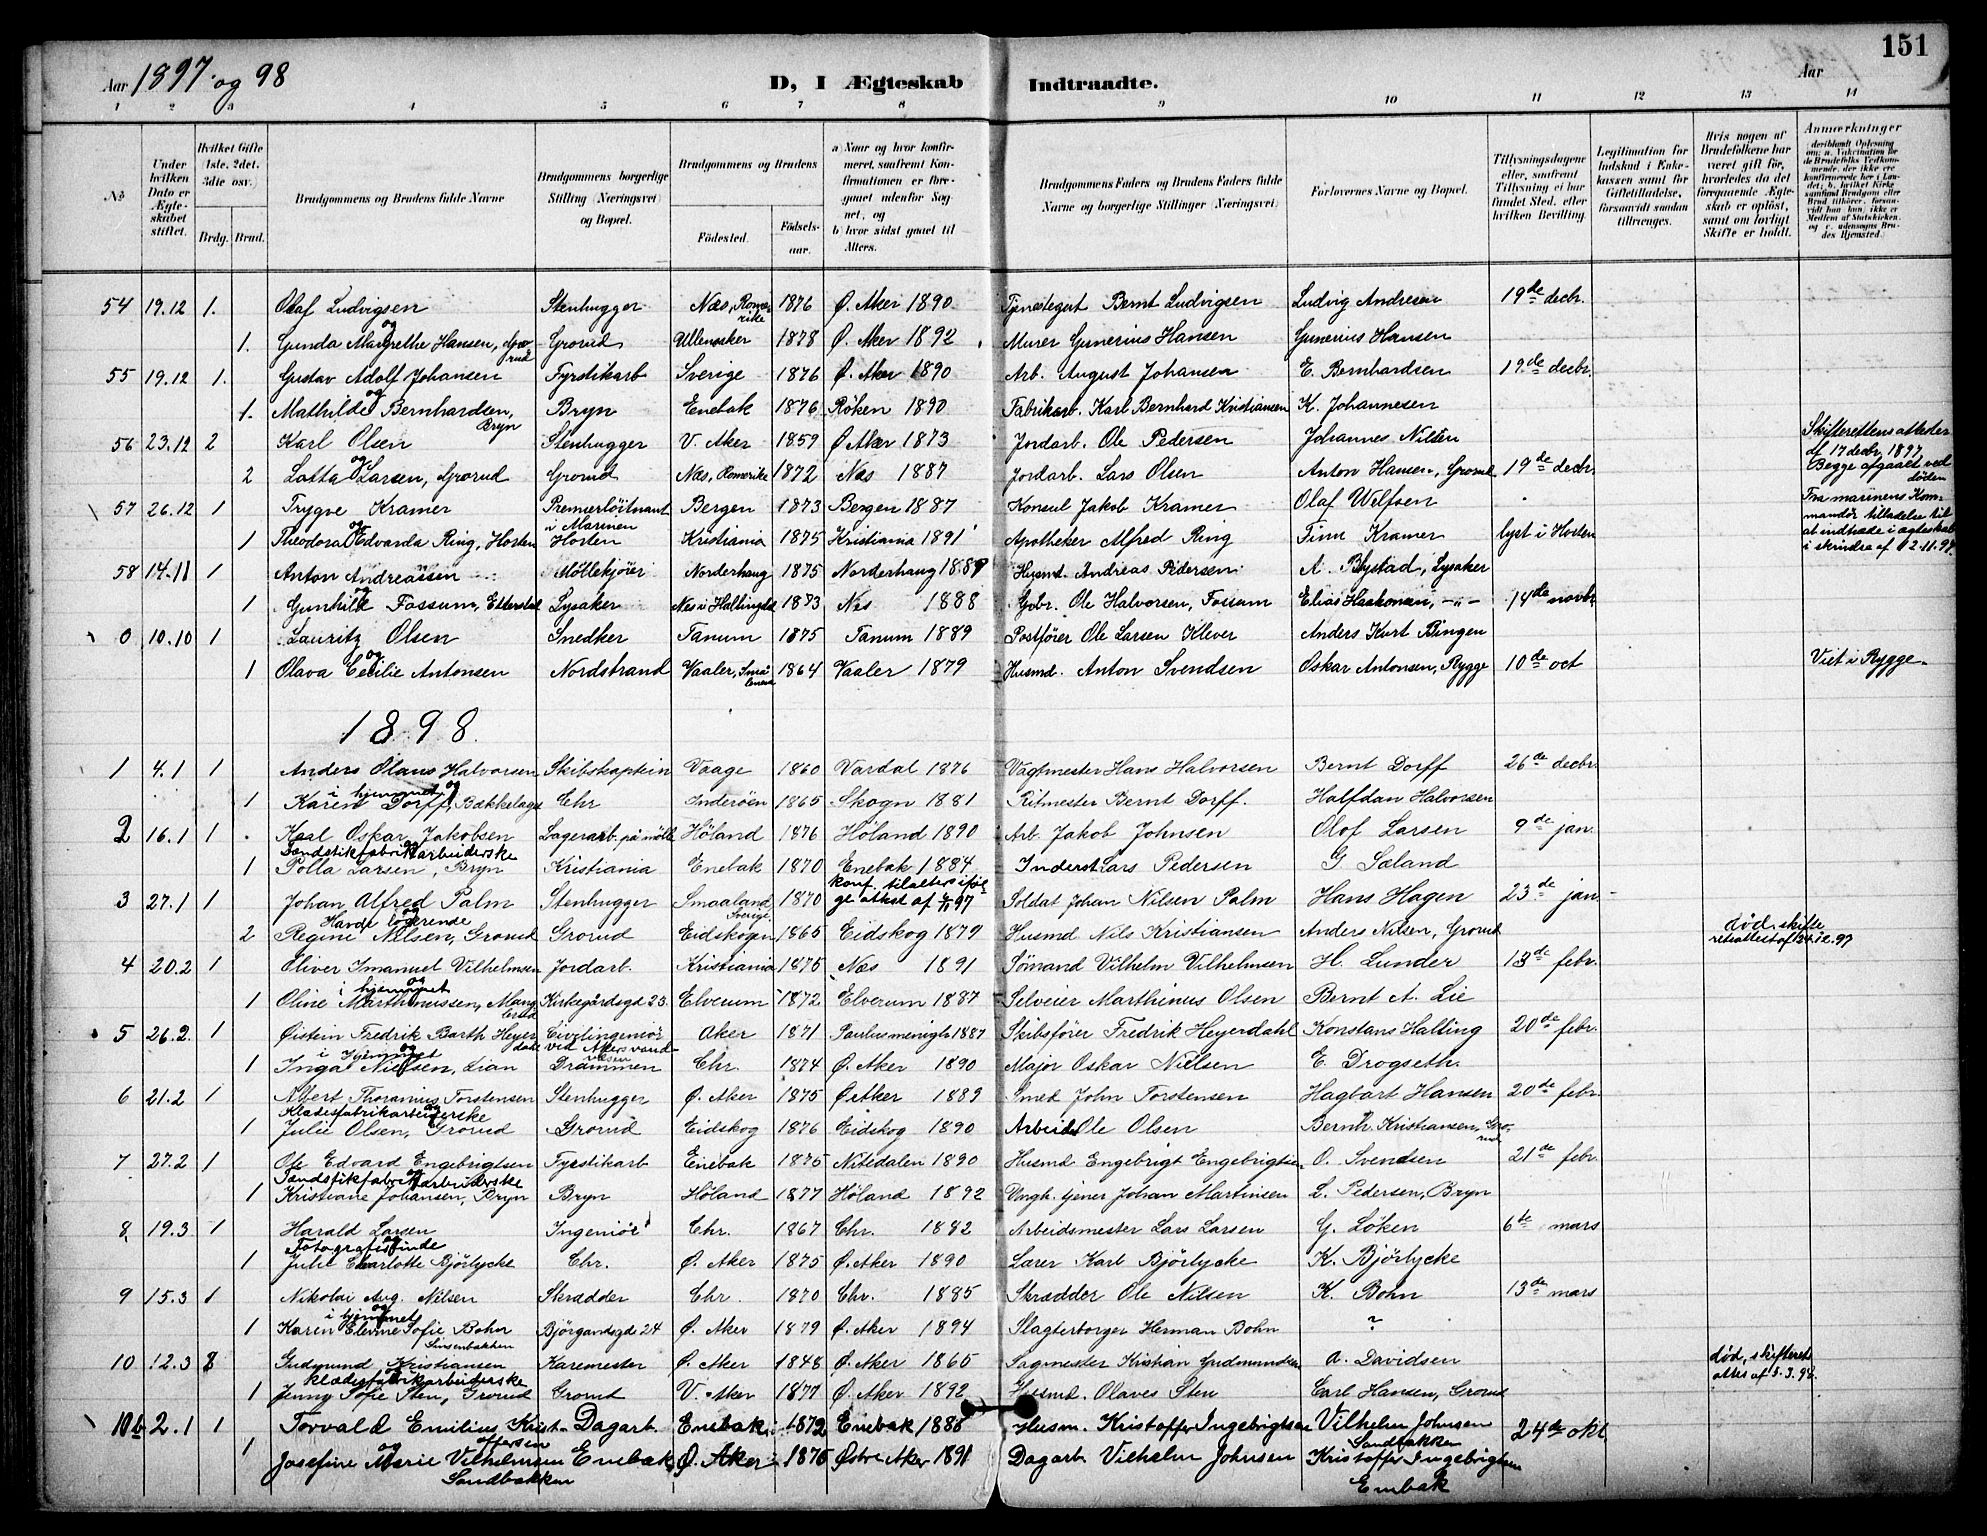 151
Aar 1897 og 98 D, I Ægteskab Indtraadte. Aar
1 2 3 4 5 6 7 8 9 10 11 12 13 14
No
Under hvilken Dato er Ægteskabet stiftet.
Hvilket Gifte 1ste, 2det, 3die osv.)
Brdg. Brud.
Brudgommens og Brudens fulde Navne
Brudgommens borgerlige Stilling (Næringsvei) og Bopæl.
Brudgommens og Brudens
Fødested. Fødselsaar.
a) Naar og hvor konfirmeret, saafremt Konfirmationen er foregaaet udenfor Sognet, og
b) hvor sidst gaaet til Alters.
Brudgommens Faders og Brudens Faders fulde Navne og borgerlige Stillinger (Næringsvei)
Forlovernes Navne og Bopæl.
Tillysningsdagene eller, saafremt Tillysning ei har fundet Sted, efter hvilken Bevilling.
Legitimation for Indskud i Enkekassen samt for Giftetilladelse, forsaavidt saadan tiltrænges.
Hvis nogen af Brudefolkene har været gift før, hvorledes da det foregaaende Ægteskab er opløst, samt om lovligt Skifte er holdt.
Anmærkninger
54 19.12 1. Olaf Ludvigsen Stenhugger Næs, Romerike 1876 Ø. Aker 1890 Tjenestegut Bernt Ludvigsen Ludvig Andresen 19de decbr.
og
1. Gunda Margrethe Hansen, Grorud Grorud Ullensaker 1878 Ø. Aker 1892 Murer Gunerius Hansen Gunerius Hansen
55 19.12 1. Gustav Adolf Johansen Fyrstikarb Sverige 1876 Ø. Aker 1890 Arb. August Johansen E. Bernhardsen 19de decbr.
og
1. Mathilde Bernhardsen, Bryn Bryn Enebak 1876 Røken 1890 Fabrikarb. Karl Bernhard Kristiansen K. Johannesen
56 23.12 2 Karl Olsen Stenhugger V. Aker 1859 Ø Aker 1873 Jordarb. Ole Pedersen Johannes Nilsen Skifterettens attester af 17 decbr. 1897,
og
2 Lotta Larsen, Grorud Grorud Næs, Romerike 1872 Næs 1887 Jordarb. Lars Olsen Anton Hansen, Grorud 19de decbr. Begge afgaaet ved døden
57 26.12 1 Trygve Kramer Premierløitnant i Marinen Bergen 1873 Bergen 1887 Konsul Jakob Kramer Olaf Fra marinens Kommandør tilladelse til
og
1 Theodora Edvarda Ring, Horten Horten Kristiania 1875 Kristiania 1891 Apotheker Alfred Ring Finn Kramer lyst i Horten at indtræde i ægteskab i skrivelse af
58 14.11 1 Anton Andreassen Møllekjører Norderhaug 1875 Norderhaug 1889 Husmd. Andreas Pedersen A. Bystad, Lysaker
og
1 Gunhild Fossum, Etterstad Lysaker Nes i Hallingdal 1873 Nes 1888 Gbr. Ole Halvorsen, Fossum Elias Haakonsen, -"- 14de novbr
0 10.10 1 Lauritz Olsen Snedker Tanum 1875 Tanum 1889 Postfører Ole Larsen Klever Anders Kurt Bingen
og
1 Olava Cecilie Antonsen Nordstrand Vaaler, Smålenene 1864 Vaaler 1879 Husmd. Anton Svendsen Oskar Antonsen, Rygge 10de oct Viet i Rygge.
1898.
1 4.1 1 Anders Olaus Halvorsen Skibskaptein Vaage 1860 Vardal 1876 Vagtmester Hans Halvorsen Bernt Dorff 26de decbr.
i hjemmet og
1 Karen Dorff, Bækkelaget Chr Inderøen 1865 Skogn 1881 Ritmester Bernt Dorff. Halfdan Halvorsen
2 16.1 1 Karl Oskar Jakobsen Lagerarb. på mølle Høland 1876 Høland 1890 Arb. Jakob Johnsen Olof Larsen 9de jan.
Tændstikfabrikarbeiderske
1 Polla Larsen, Bryn Kristiania Enebak 1870 Enebak 1884 Inderst Lars Pedersen G Sæland
3 27.1 1 Johan Alfred Palm Stenhugger Smaaland Sverige. 1870 konf. til alters iføl-ge attest af 97 Soldat Johan Nilsen Palm Hans Hagen 23de jan.
Havde logerende og
2 Regine Nilsen, Grorud Grorud Eidskogen 1865 Eidskog 1879 Husmd Nils Kristiansen Anders Nilsen, Grorud død, skifteretsattest af 24.12.97
4 20.2 1 Oliver Imanuel Vilhelmsen Jordarb. Kristiania 1875 Næs 1891 Sømand Vilhelm Vilhelmsen H. Lunder 13de febr.
i hjemmet og
1 Oline Marthinussen, Manglerud Kirkegårdsgd 23. Elverum 1872 Elverum 1887 Selveier Marthinus Olsen Bernt A. Lie
5 26.2. 1 Øistein Fredrik Barth Heyerdahl Civilingeniør ved Akers vandvæsen Aker 1871 Paulus menigh 1887 Skibsfører Fredrik Heyerdahl Konstans Halling 20de febr.
i hjemmet og
1 Inga Nielsen, Lian Drammen Chr. 1874 Ø. Aker 1890 Major Oskar Nielsen E. Drogseth.
6 21.2 1 Albert Thoranius Torstensen Stenhugger Ø. Aker 1875 Ø. Aker 1889 Smed John Torstensen Hagbart Hansen 20de febr.
Klædesfabrikarbeiderske og
1 Julie Olsen, Grorud Grorud Eidskog 1876 Eidskog 1890 Arbeider Ole Olsen Bernh. Kristiansen, Grorud
7 27.2 1 Ole Edvard Engebrigtsen Fyrstikarb Enebak 1875 Nitedalen 1890 Husmd Engebrigt Engebrigtsen O. Svendsen 21de febr.
Tændstikfabrikarbeiderske og
1 Kristiane Johansen, Bryn Bryn Høland 1877 Høland 1892 Ungk. tjener Johan Martinsen L. Pedersen, Bryn
8 19.3 1 Harald Larsen Ingeniør Chr. 1867 Chr. 1882 Arbeidsmester Lars Larsen G. Løken 6te mars
Fotografisinde og
1 Julie Charlotte Bjørlycke Chr. Ø. Aker 1875 Ø. Aker 1890 Lærer Karl Bjørlycke K. Bjørlycke
9 15.3 1 Nikolai Aug. Nilsen Skrædder Chr. 1870 Chr. 1885 Skrædder Ole Nilsen K. Bohn 13de mars
i hjemmet og
1 Karen Elevine Sofie Bohn Sinsenbakken Bjørgandsgde 24 Ø. Aker 1879 Ø. Aker 1894 Slagterborger Herman Bohn ?
10 12.3 3 Gudmund Kristiansen Karemester Ø. Aker 1848 Ø. Aker 1865 Sagmester Kristian Gudmundsen A. Davidsen død, skifteretsattes af 5.3.98.
klædesfabrikarbeiderske og
1 Jenny Sofie Sten, Grorud Grorud V. Aker 1877 Ø. Aker 1892 Husmd. Olaves Sten Carl Hansen, Grorud
10b 2.1 1 Torvald Emilius Kristoffersen Dagarb. Enebak 1872 Enebak 1888 Husm. Kristoffer Ingebrigtsen Vilhelm Johnsen Sandbakken 24de okt.
og
1 Josefine Marie Vilhelmsen Sandbakken Enebak Ø. Aker 1875 Østre Aker 1891 Dagarb Vilhelm Johnsen Kristoffer Ingebrigtsen Enebak